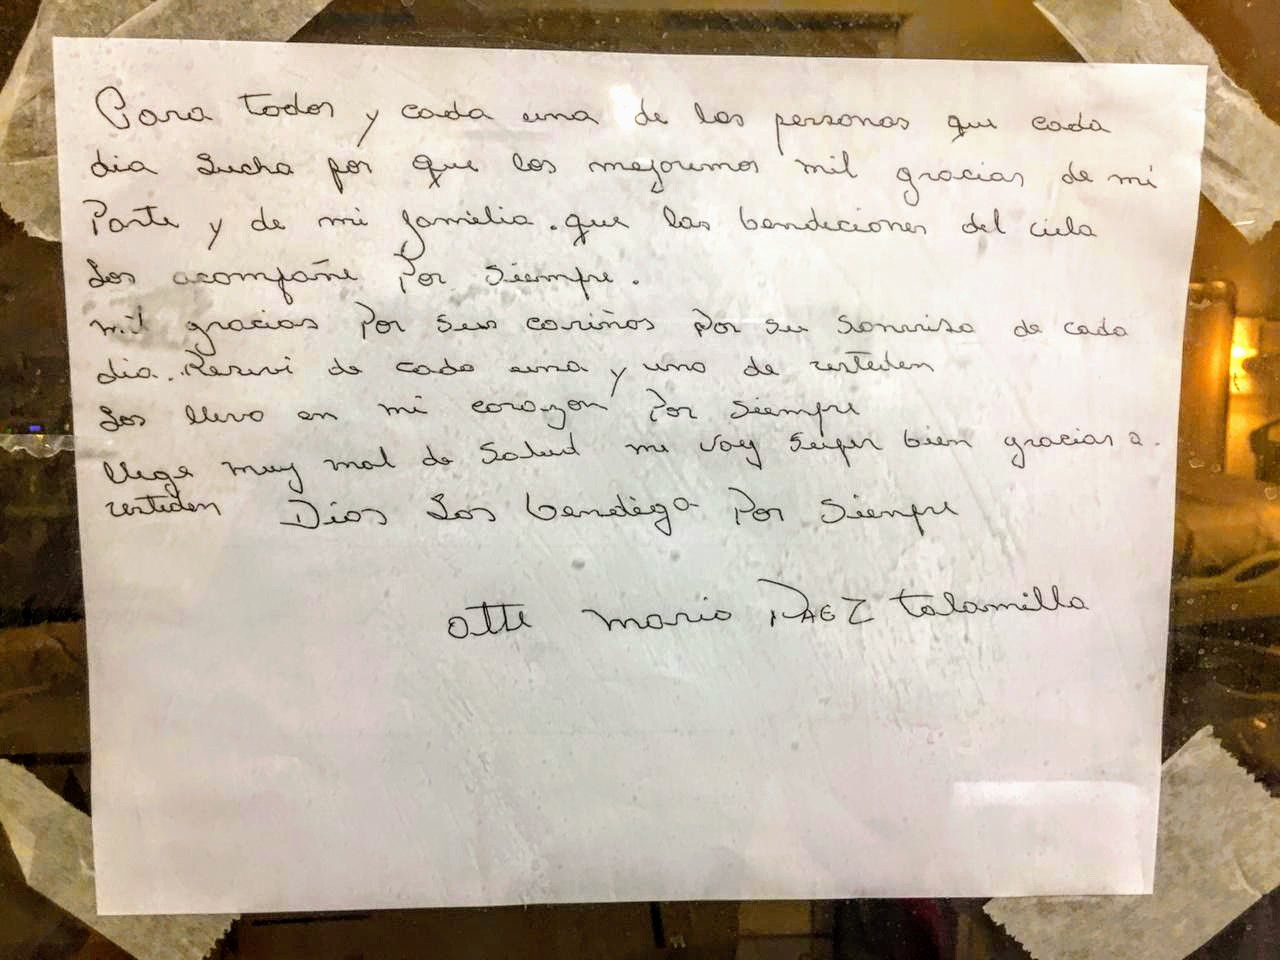 Para todos y cada una de las personas que cada
dia Lucha por que los mejoremos mil gracias de mi
Parte y de mi familia. que las bendiciones del ciela
Los acompañe Por Siempre.
mil gracias Por Sus cariños Por su Sonrrisa de cada
dia. Resivi de cada una y uno de ustedes
Los llevo en mi corazon Por Siempre
llege muy mal de Salud me voy Super bien gracias a
ustedes Dios Los bendiga Por Siempre
Atte Mario PAEZ talamilla